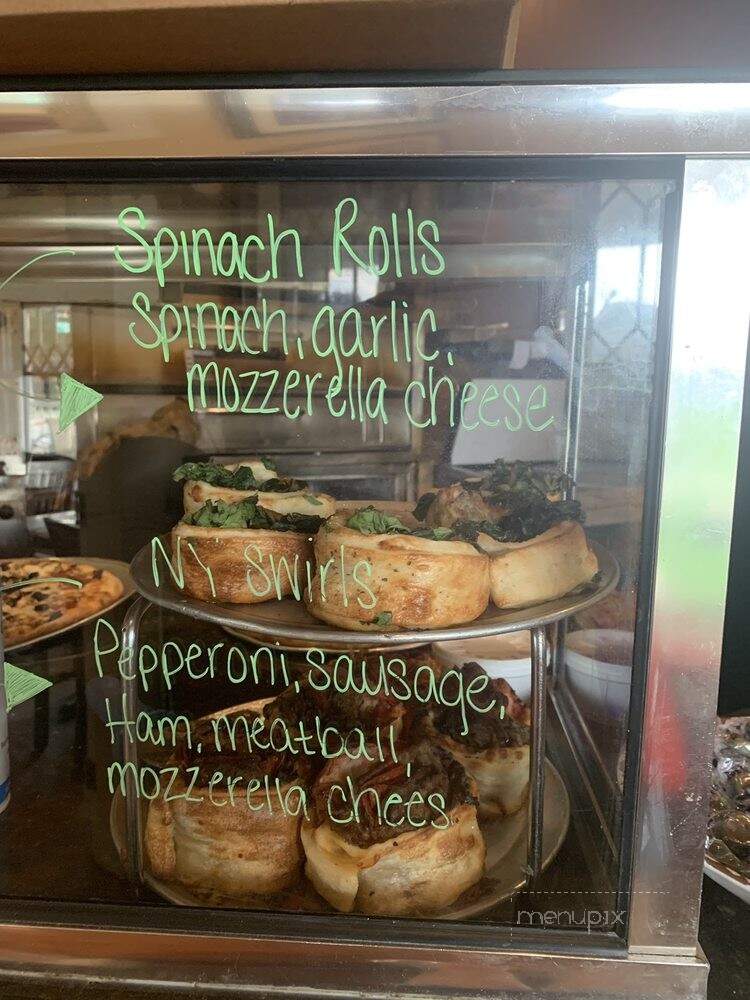 Spinach Rolls
Spinach, garlic,
mozzerella cheese
NY Swirls
Pepperoni, sausage,
Ham, meatball,
mozzerella chees
menupix